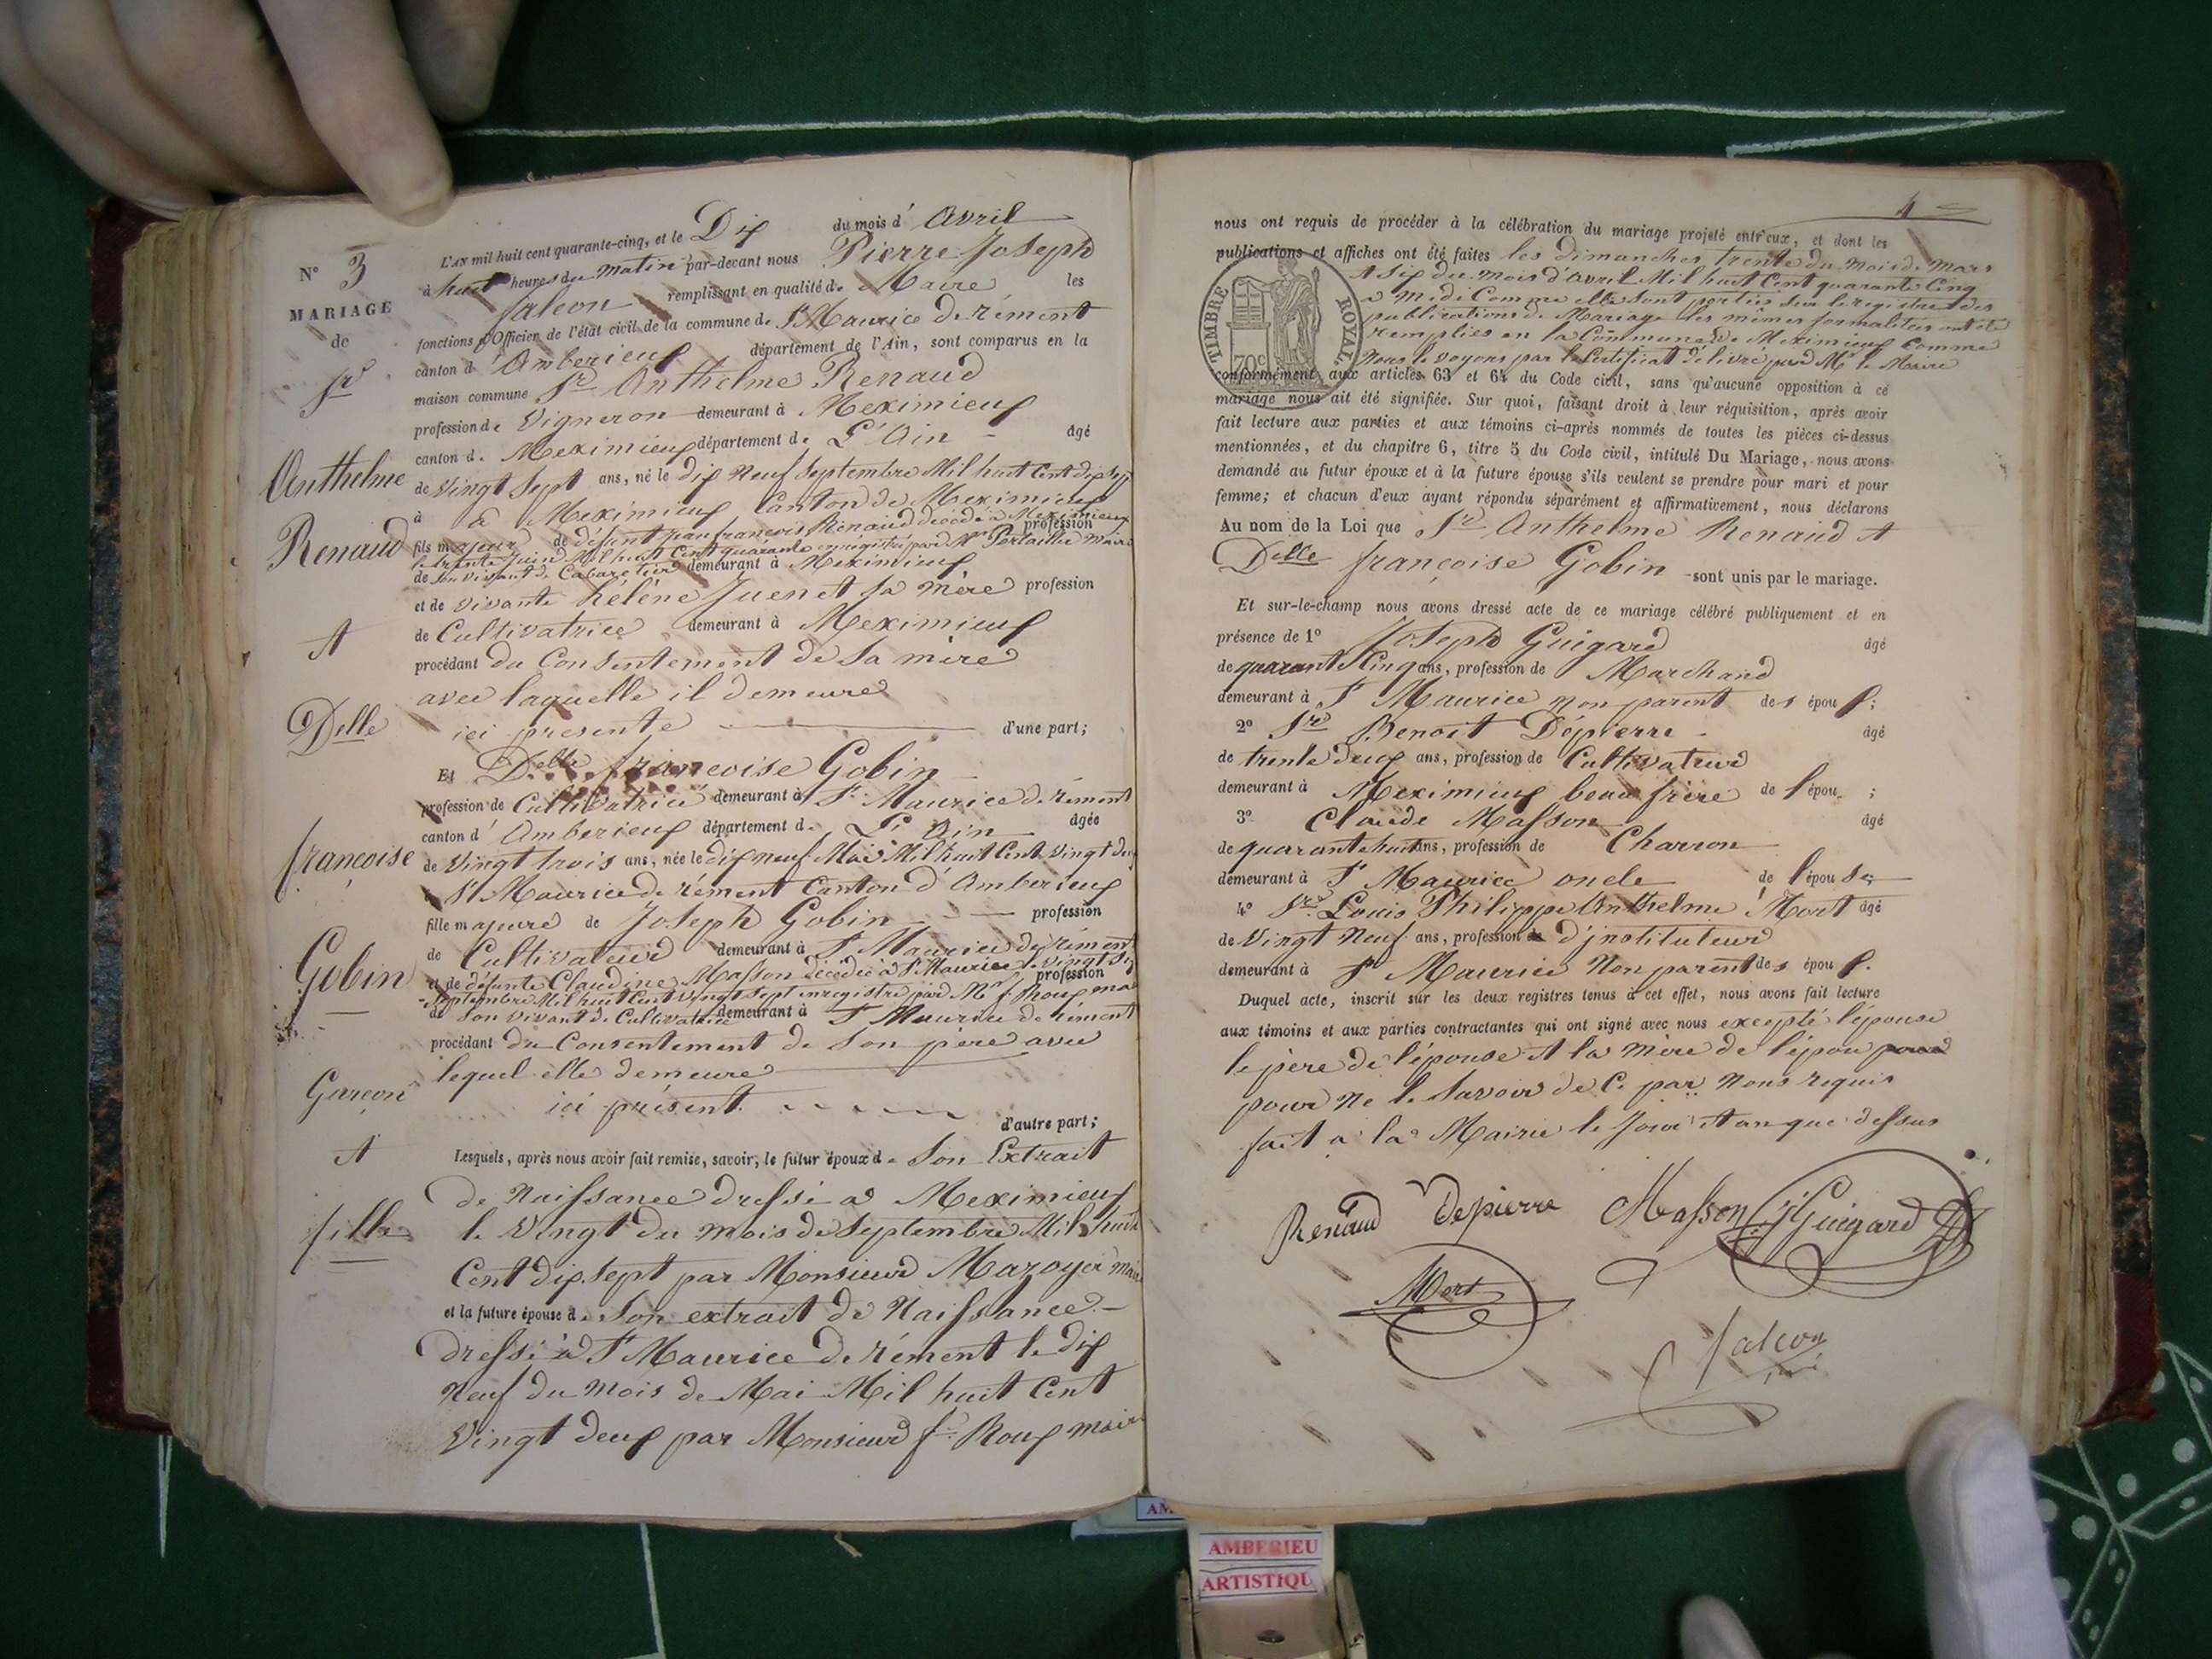 N° 3
MARIAGE
de
Sr
Anthelme
Renaud
et
Delle
françoise
Gobin
Garçon
et
fille
L'AN mil huit cent quarante-cinq, et le Dix du mois d' Avril
à huit heures du matin par-devant nous Pierre Joseph
falcon remplissant en qualité de Maire les
fonctions d'Officier de l'état civil de la commune de St Maurice de rément
canton d' Amberieux département de l'Ain, sont comparus en la
maison commune Sr Anthelme Renaud
profession de Vigneron demeurant à Meximieux
canton de Meximieux département de L'Ain âgé
de vingt Sept ans, né le dix neuf Septembre Mil huit Cent dix Sept
à à Meximieux Canton de Meximieux
fils majeur de défunt françois Renaud décédé à Meximieux profession
le trente Juin Mil huit Cent quarante enregistré par Mr maire
de Son vivant de Cabaretier demeurant à Meximieux
et de vivante héléne Juenet Sa mère profession
de Cultivatrice demeurant à Meximieux
procédant du Consentement de Sa mère
avec laquelle il demeure
ici presente d'une part;
Et Delle françoise Gobin
profession de Cultivatrice demeurant à St Maurice de rément
canton d' Amberieux département de L'Ain âgée
de Vingt trois ans, née le dix neuf Mai Mil huit Cent Vingt deux
à St Maurice de rément Canton d'Amberieux
fille majeure de Joseph Gobin profession
de Cultivateur demeurant à St Maurice de rément
et de défunte Claudine Masson décédée à St Maurice le vingt Six profession
Septembre Mil huit Cent Vingt Sept enregistré par Mr f. Roux mai
de Son vivant de Cultivatrice demeurant à St Maurice de rément
procédant du Consentement de Son père avec
lequel elle demeure
ici présent d'autre part;
Lesquels, après nous avoir fait remise, savoir; le futur époux de Son Extrait
de Naissance dressé à Meximieux
le Vingt du mois de Septembre Mil huit
Cent dix Sept par Monsieur Mazoyer maire
et la future épouse de Son extrait de Naissance
dressé à St Maurice de rément le dix
neuf du mois de Mai Mil huit Cent
Vingt deux par Monsieur f. Roux maire
4
nous ont requis de procéder à la célébration du mariage projeté entr'eux, et dont les
publications et affiches ont été faites les dimanches trente du mois de Mars
et Six du mois d'Avril Mil huit Cent quarante Cinq
a midi Comme elles Sont portées Sur le registre des
publications de Mariage les mêmes formalitées ont été
remplies en la Commune de Meximieux Comme
Nous le voyons par le Certificat délivré par Mr le Maire
TIMBRE ROYAL
70c
conformément aux articles 63 et 64 du Code civil, sans qu'aucune opposition à ce
mariage nous ait été signifiée. Sur quoi, faisant droit à leur réquisition, après avoir
fait lecture aux parties et aux témoins ci-après nommés de toutes les pièces ci-dessus
mentionnées, et du chapitre 6, titre 5 du Code civil, intitulé Du Mariage, nous avons
demandé au futur époux et à la future épouse s'ils veulent se prendre pour mari et pour
femme; et chacun d'eux ayant répondu séparément et affirmativement, nous déclarons
Au nom de la Loi que Sr Anthelme Renaud et
Delle françoise Gobin sont unis par le mariage.
Et sur-le-champ nous avons dressé acte de ce mariage célébré publiquement et en
présence de 1° Joseph Guigard âgé
de quarante Cinq ans, profession de Marchand
demeurant à St Maurice non parent des époux;
2° Sr Benoit Dépierre âgé
de trente deux ans, profession de Cultivateur
demeurant à Meximieux beau frère de l'épou ;
3° Claude Masson âgé
de quarante huit ans, profession de Charron
demeurant à St Maurice oncle de l'épouse
4° Sr Louis Philippe Anthelme Mort âgé
de Vingt Neuf ans, profession de d'jnstituteur
demeurant à St Maurice Non parent des époux.
Duquel acte, inscrit sur les deux registres tenus à cet effet, nous avons fait lecture
aux témoins et aux parties contractantes qui ont signé avec nous excepté l'épouse
le père de l'épouse et la mère de l'époux pour
pour ne le Savoir de Ce par Nous requis
fait a la Mairie le Jour et an que dessus
Renaud Depierre Masson J Guigard
Mort
falcon
AMBERIEU
ARTISTIQU